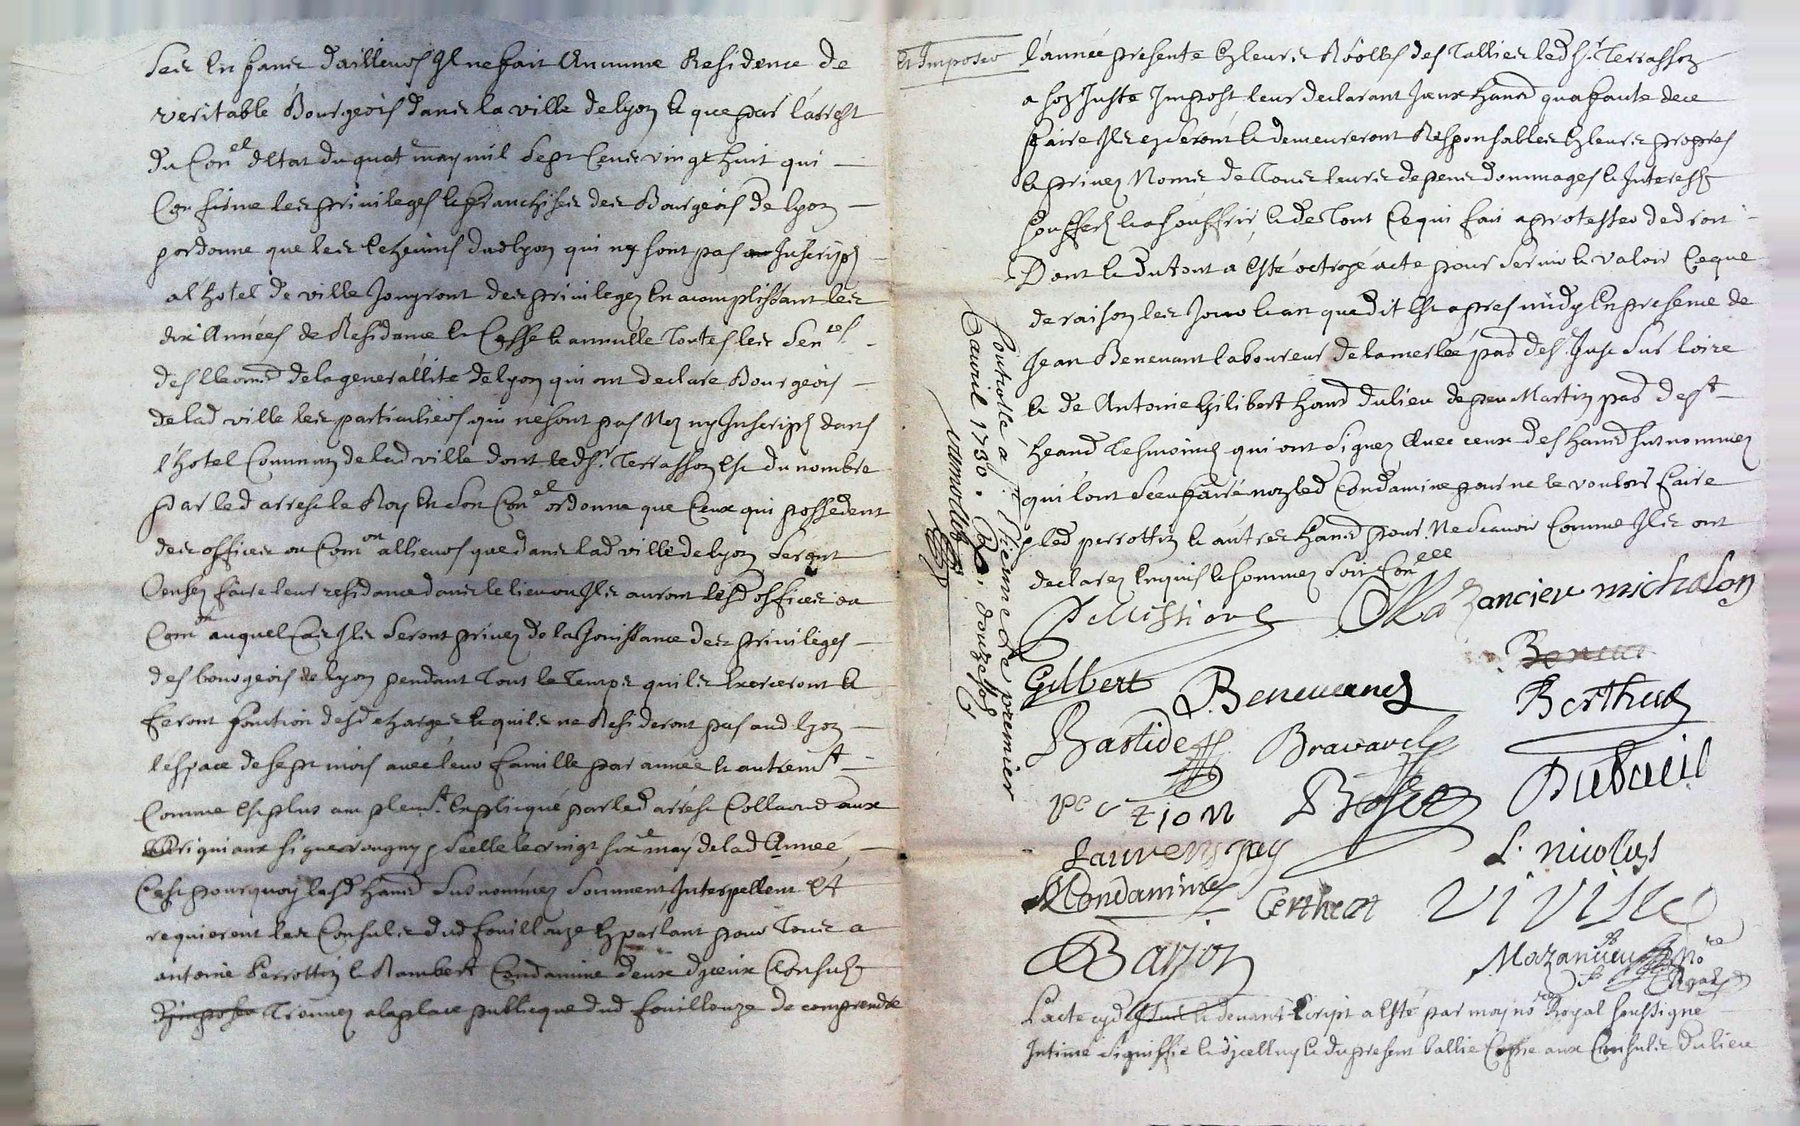 ses enfans dailleurs Il ne fait Aucune Residence de
veritable Bourgeois dans la ville de lyon et que par l'arrest
du Con.el d'Etat du quat.e may mil sept Cens vingt huit qui
Confirme les privileges et franchises des Bourgeois de lyon
ordonne que les citoyens dud lyon qui ne sont pas Inscripts
a l'hotel de ville Jouyront des privileges En acomplissant les
dix Années de Residance et Casse et annulle Toutes les Sen.ces
des Elleus de la generallité de lyon qui ont declaré Bourgeois
de lad ville les particuliers qui ne sont pas Nez ny Inscripts dans
l'hotel Commun de lad ville dont led S.r Terrasson Est du nombre
Par led arrest le Roy En son Con.el ordonne que Ceux qui possedent
des offices ou Com.on allieurs que dans lad ville de lyon seront
Censez faire leur residance dans le lieu ou Ils auront lesd offices ou
Com.on auquel Cas Ils seront privez de la Jouissance des privileges
des bourgeois de lyon pendant Tout le Temps quils Exerceront et
feront fonction desd charges et quils ne Resideront pas aud lyon
l'espace de sept mois avec leur famille par année et autrem.t
Comme Est plus amplem.t Expliqué par led arrest Collationné aux
Originaux signé et scellé le vingt six.e may de lad Année
C'est pourquoy lesd habitants susnommez somment Interpellent Et
requierent les Consuls dud fouillouze En parlant pour Tous a
antoine Perrottin et Rambert Condamine deux d'yceux Consuls
Trouvez a la place publicque dud fouillouze de comprendre
et Imposer l'année presente En leurs Roolles des Tallies led S.r Terrasson
a son Juste Impost leur declarant Iceux habitants qua faute de ce
faire Ils En seront et demeureront Responsables En leurs propres
et privez Noms de Tous leurs depens dommages et Interests
soufferts et a souffrir, et de Tout Ce qui fait a protester de droit
Dont et du Tout a Esté octroyé acte pour servir et valoir Ce que
de raison les Jour et an que dit Est apres midy En presence de
Jean Benevant laboureur de la meslée par.se de S.t Just sur loire
et de Antoine Gilibert hab.t du lieu de peu Martin par.se de S.t
heand Tesmoins qui ont signez Avec ceux des habitants susnommez
qui l'ont sceu faire non led Condamine pour ne le vouloir faire
led perrottin et autres habitants pour Ne scavoir Comme Ils ont
declarez Enquis et sommez
Controllé a S.t Etienne le premier
avril 1730. R. douze sols
Pellissioux
Mazancieu michalon
Gilbert
Benevent
Berthet
Bastide
Bravard
Dubreuil
L. nicolas
Condamine
Certheat
Barjon
Mazancieu No.re Royal
L'acte cy devant Escript a Esté par moy no.re Royal soussigné
Intimé signiffié et d'ycelluy et du present ballié Coppie aux Consuls du lieu